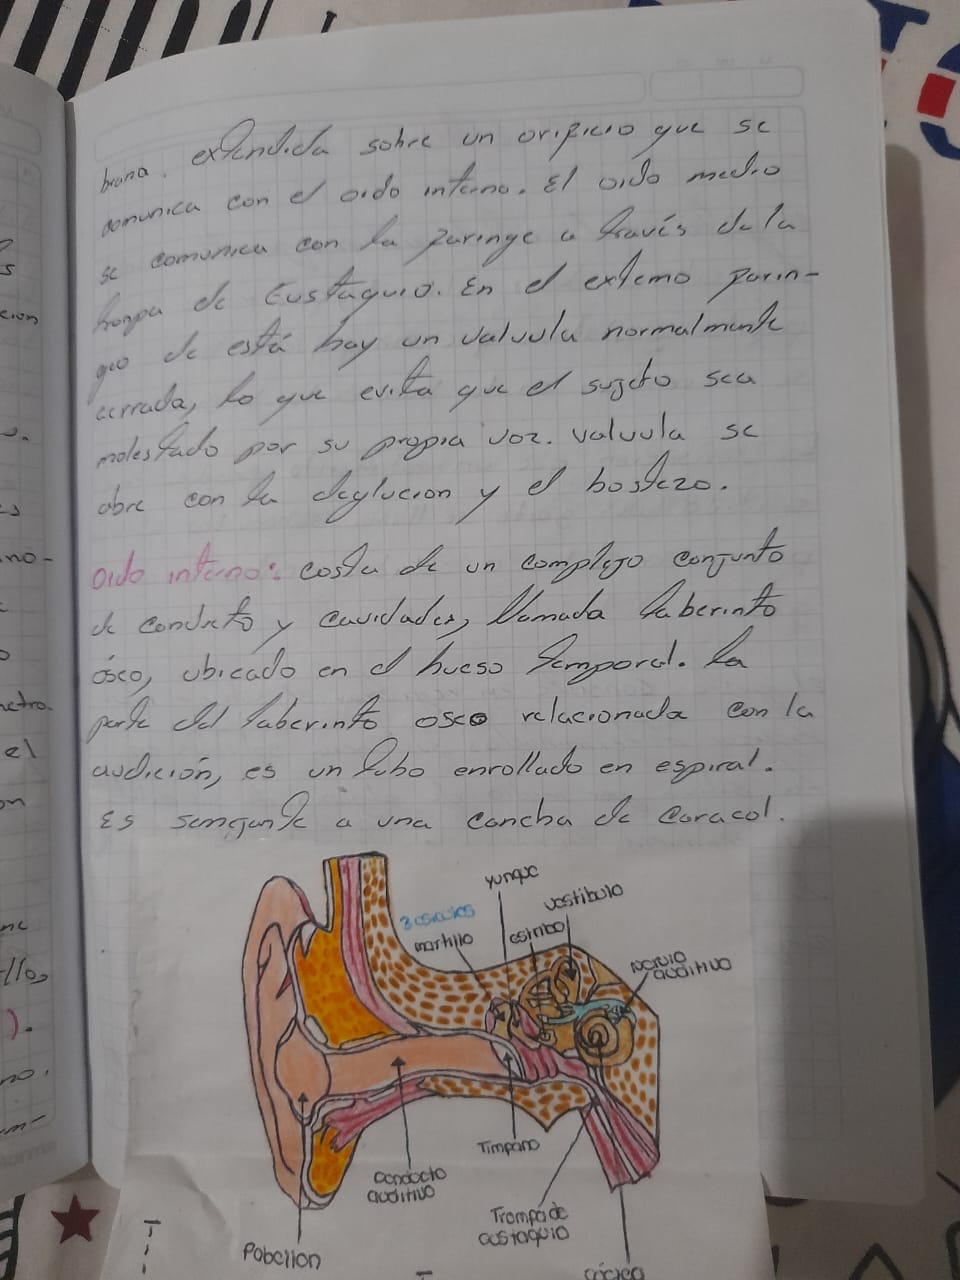 brana. extendida sobre un orificio que se
comunica con el oido interno. El oido medio
se comunica con la faringe a través de la
trompa de Eustaquio. En el extemo farin-
geo de está hay un valvula normalmente
cerrada, lo que evita que el sujeto sea
molestado por su propia voz. valvula se
abre con la deglucion y el bostezo.
oido interno: costa de un complejo conjunto
de conducto y cavidades, llamada laberinto
óseo, ubicado en el hueso temporal. la
parte del laberinto oseo relacionada con la
audición, es un tubo enrollado en espiral.
Es semejante a una concha de caracol.
yunque
vestibulo
3 
estribo
martillo
nervio
auditivo
Timpano
conducto
auditivo
Trompa de
eustaquio
Pabellon
s
cion
o.
es
no-
o
netro.
el
on
llo,
).
no.